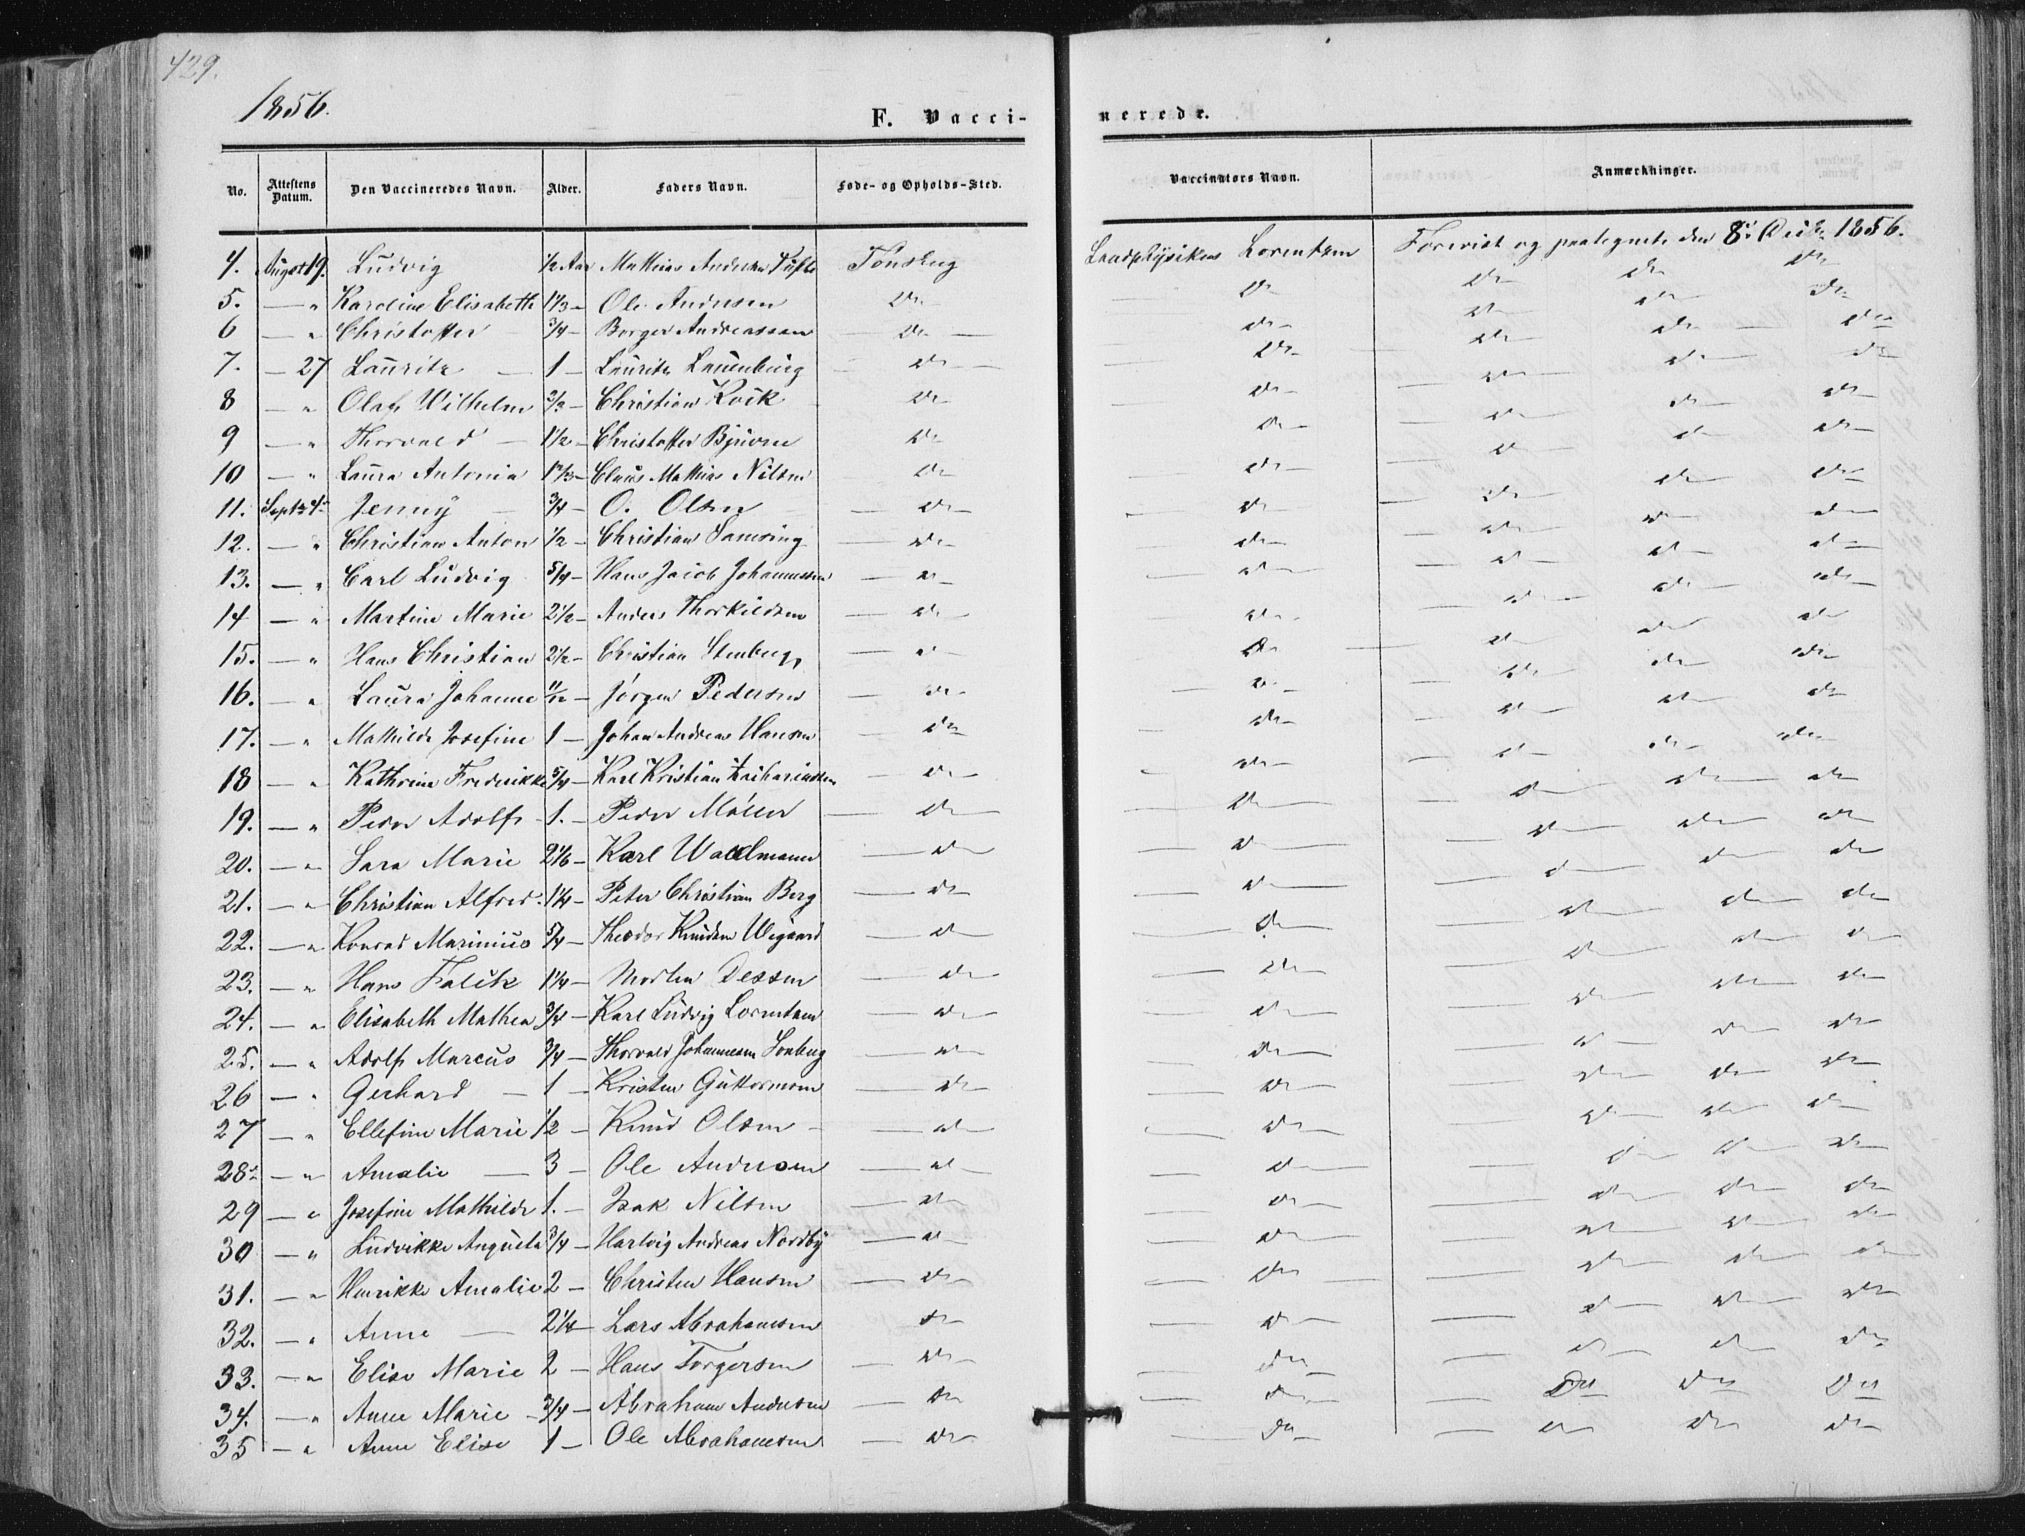 429.
1856.
F. Vaccinerede.
No. Attestens Datum. Den Vaccineredes Navn. Alder. Faders Navn. Føde- og Opholds-Sted. Vaccinators Navn. Anmærkninger.
4. August 19. Ludvig 1/2 Aar Mathias Andersen Tønsberg Landphysikus Lorentzen Forevist og paategnet den 8de 1856.
5. — " Karoline Elisabeth 1 1/3 – Ole Andersen Do Do Do Do Do
6 — " Christoffer 3/4 – Borger Andreassen Do Do Do Do Do
7. — 27 Lauritz — 1 — Lauritz Lauenborg Do Do Do Do Do
8 — " Olaf Wilhelm 2/3 – Christian Do Do Do Do Do
9 — " Thorvald — 1 1/2 – Christoffer Do Do Do Do Do
10 — " Laura Antonia Claus Mathias Nilsen Do Do Do Do Do
11. Septr 4de Jenny — 3/4 – O. Olsen Do Do Do Do Do
12. — " Christian Anton 1/2 – Christian Samsing Do Do Do Do Do
13. — " Carl Ludvig 5/4 – Hans Jacob Johannessen Do Do Do Do Do
14 — " Martine Marie 2 1/2 – Anders Thorkildsen Do Do Do Do Do
15. — " Hans Christian 2 1/2 – Christian Stenberg Do Do Do Do Do
16. — " Laura Johanne 11/12 – Jørgen Pedersen Do Do Do Do Do
17. — " Mathilde Josefine 1 — Johan Andreas Hansen Do Do Do Do Do
18 — " Kathrine Fredrikke 5/4 – Karl Kristian Zachariassen Do Do Do Do Do
19. — " Peder Adolf – 1. – Peder Møller Do Do Do Do Do
20. — " Sara Marie 2 1/6 – Karl Do Do Do Do Do
21. — " Christian Alfred 1 1/4 – Peter Christian Berg Do Do Do Do Do
22. — " Konrad Marinius 5/4 – Theodor Knudsen Wegaard Do Do Do Do Do
23. — " Hans Falck 1 1/4 – Morten Dessen Do Do Do Do Do
24. — " Elisabeth Mathea 3/4 – Karl Ludvig Lorentzen Do Do Do Do Do
25. — " Adolf Marcus 3/4 – Thorvald Johannesen Do Do Do Do Do
26 — " Gerhard — 1 – Kristen Guttormsen Do Do Do Do Do
27 — " Ellefine Marie 1/2 – Knud Olsen – Do Do Do Do Do
28. — " Amalie — 3 – Ole Andersen Do Do Do Do Do
29 — " Josefine Mathilde 1. – Isak Nilsen Do Do Do Do Do
30 — " Ludvikke Augusta 3/4 – Hartvig Andreas Nordby Do Do Do Do Do
31. — " Henrikke Amalie 2 – Christen Hansen Do Do Do Do Do
32. — " Anne — 2 1/4 – Lars Abrahamsen Do Do Do Do Do
33. — " Elise Marie 2 – Hans Torgersen Do Do Do Do Do
34. — " Anne Marie – 3/4 – Abraham Andersen Do Do Do Do Do
35 — " Anne Elise 1 – Ole Abrahamsen Do Do Do Do Do